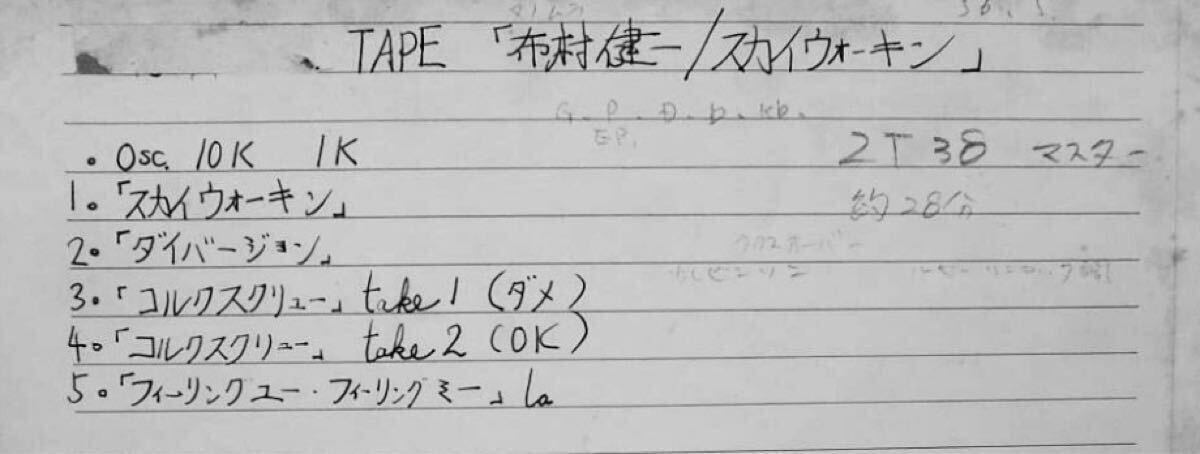 TAPE 「布村健一/スカイウォーキン」
G. P. D. b. kb.
EP.
• Osc. 10K 1K
2T38 マスター
1。「スカイウォーキン」
約28分
2。「ダイバージョン」
クロスオーバー
3。「コルクスクリュー」 take 1 (ダメ)
4。「コルクスクリュー」 take 2 (OK)
5。「フィーリングユー・フィーリングミー」 la